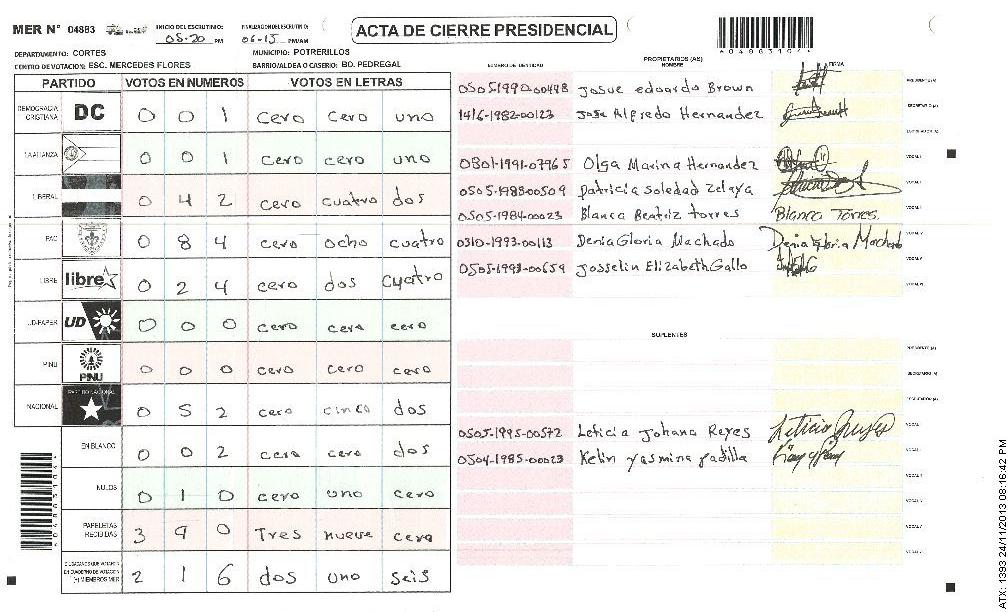 MER N° 04883 INICIO DEL ESCRUTINIO: 05-20 PM FINALIZACION DEL ESCRUTINIO: 06-15 PM/AM
ACTA DE CIERRE PRESIDENCIAL
DEPARTAMENTO: CORTES MUNICIPIO: POTRERILLOS
CENTRO DE VOTACION: ESC. MERCEDES FLORES BARRIO/ALDEA O CASERIO: BO. PEDREGAL
PARTIDO VOTOS EN NUMEROS VOTOS EN LETRAS
DEMOCRACIA CRISTIANA DC 0 0 1 cero cero uno
LA ALIANZA 0 0 1 cero cero uno
LIBERAL 0 4 2 cero cuatro dos
PAC 0 8 4 cero ocho cuatro
LIBRE libre 0 2 4 cero dos cuatro
UD-FAPER UD 0 0 0 cero cero cero
PINU PINU 0 0 0 cero cero cero
NACIONAL PARTIDO NACIONAL 0 5 2 cero cinco dos
EN BLANCO 0 0 2 cero cero dos
NULOS 0 1 0 cero uno cero
PAPELETAS RECIBIDAS 3 9 0 Tres nueve cero
CIUDADANOS QUE VOTARON EN CUADERNO DE VOTACION (+) MIEMBROS MER 2 1 6 dos uno seis
PROPIETARIOS (AS)
NUMERO DE IDENTIDAD NOMBRE FIRMA
0505-1990-00448 Josue edoardo Brown PRESIDENTE (A)
1416-1982-00123 Jose Alfredo Hernandez SECRETARIO (A)
ESCRUTADOR (A)
0801-1991-07965 Olga Marina Hernandez VOCAL I
0505-1988-00509 Patricia Soledad Zelaya
0505-1984-00023 Blanca Beatriz Torres Blanca Torres.
0310-1993-00113 Denia Gloria Machado Denia Gloria Machado
0505-1993-00659 Josselin Elizabeth Gallo
SUPLENTES
PRESIDENTE (A)
SECRETARIO (A)
ESCRUTADOR (A)
0505-1995-00572 Leticia Johana Reyes Leticia Reyes
0504-1985-00023 Kelin Yasmina Padilla
A04883104
ATX: 1393 24/11/2013 08:16:42 PM